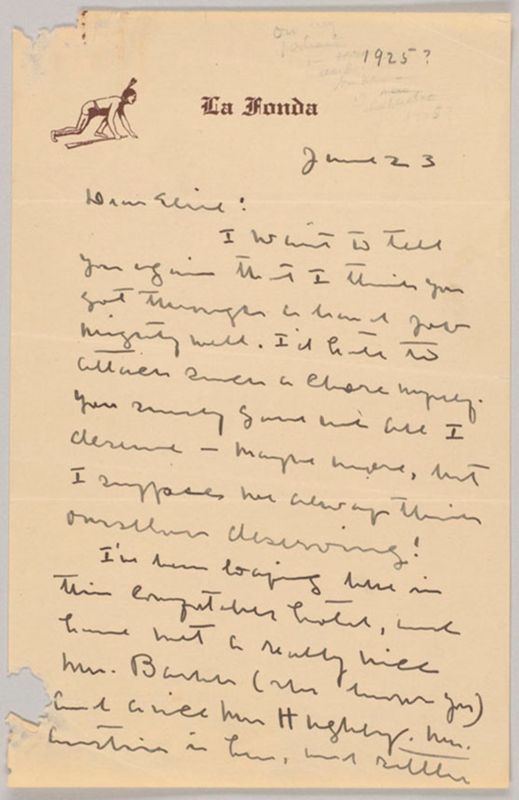 1925?
La Fonda
June 23
Dear Elise:
I want to tell
you again that I think you
got through a hard job
mighty well. I'd hate to
attack such a chore myself.
You surely gave me all I
deserve – maybe more, but
I suppose we always think
ourselves deserving!
I've been loafing here in
this comfortable hotel, and
have met a really nice
Mrs. Barker (she knows you)
and a nice Mrs Hughey. Mrs.
Austin is here, and